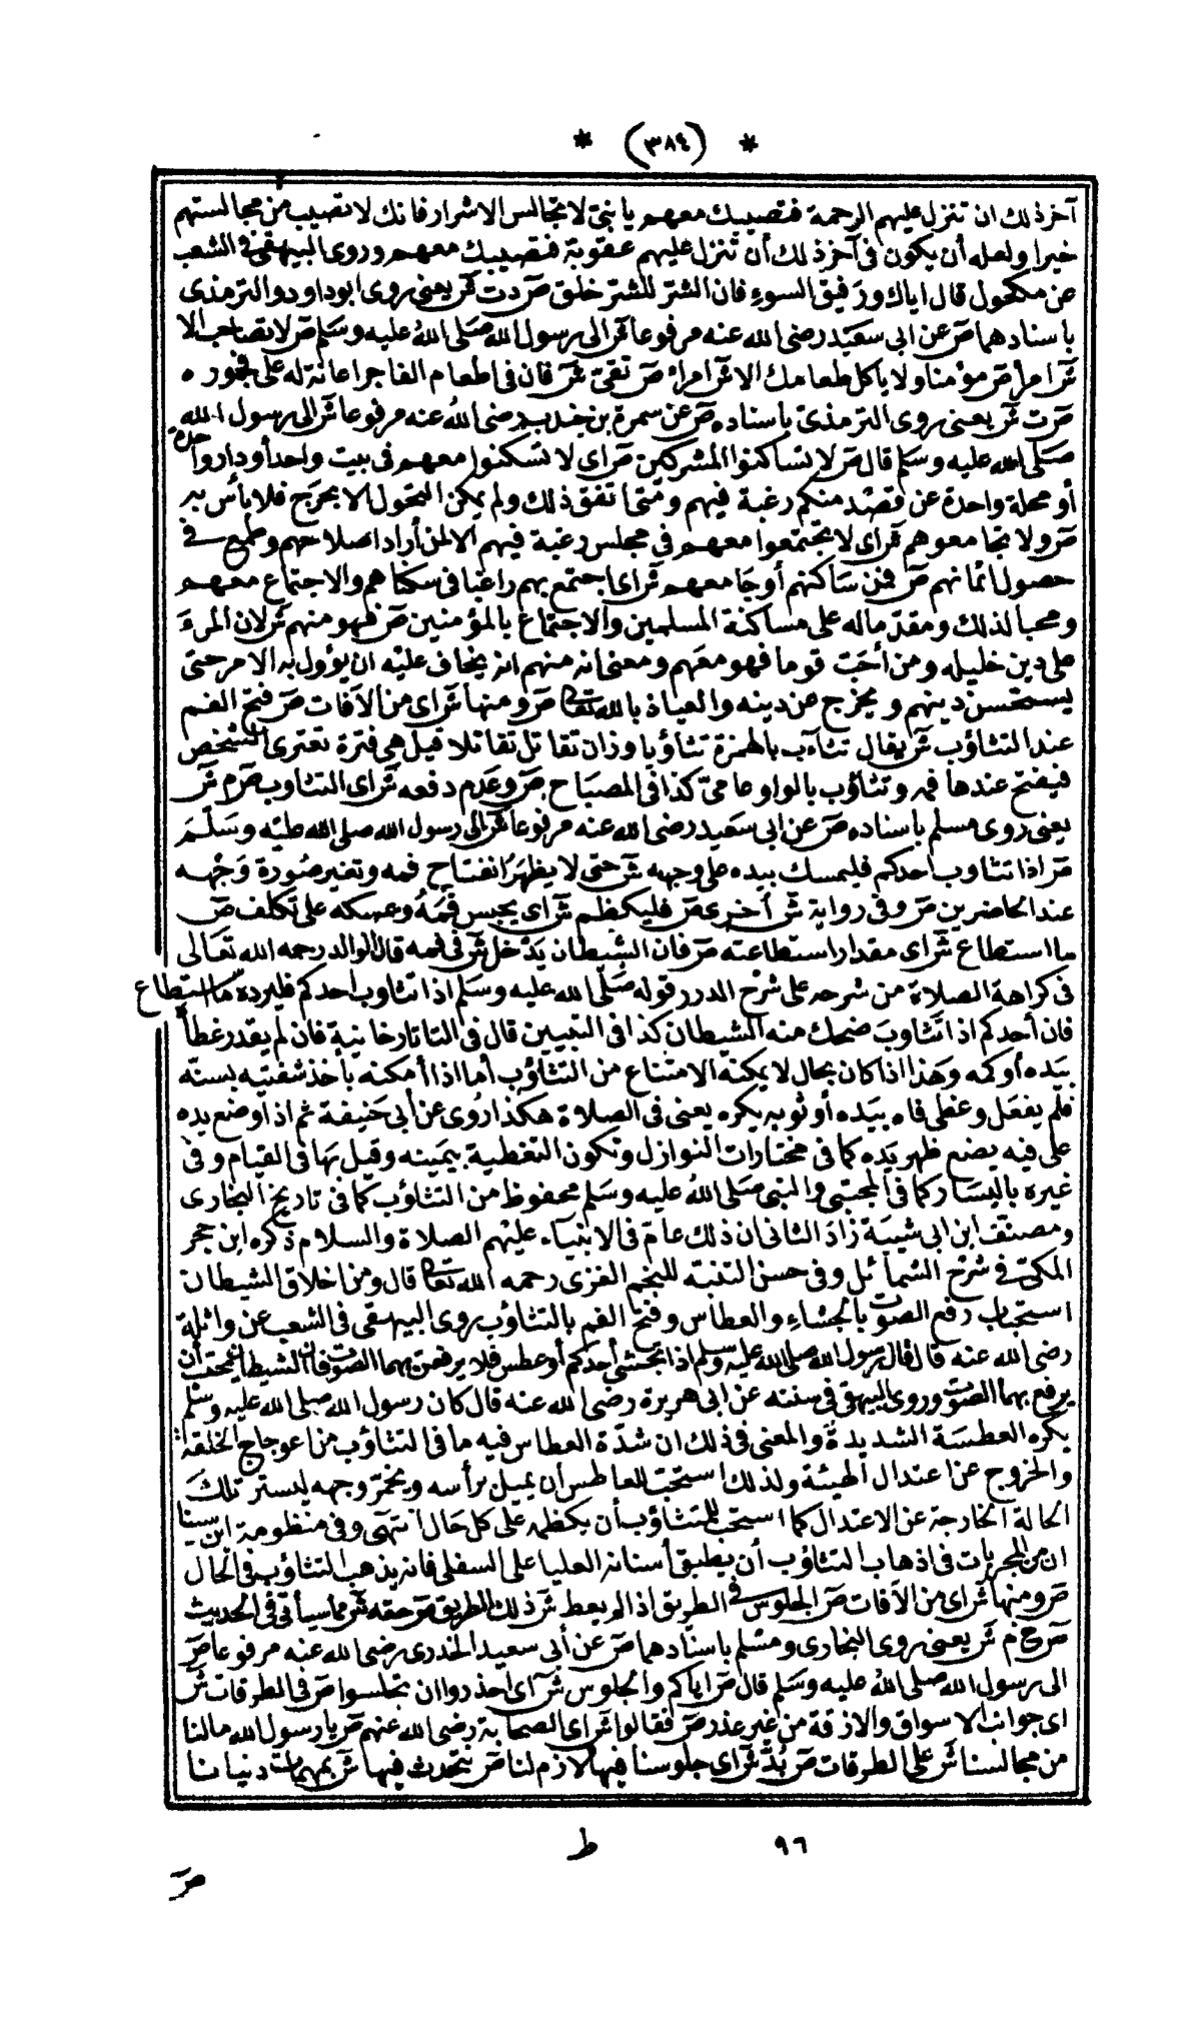 * (٣٨٤) *
آخر ذلك ان تنزل عليهم الرحمة فتصيبك معهم يا بنىّ لا تجالس الاشرار فانك لا تصيب من مجالستهم
خيرا ولعله أن يكون فى آخر ذلك أن تنزل عليهم عقوبة فتصيبك معهم وروى البيهقى فى الشعب
عن مكحول قال اياك ورفيق السوء فان الشر للشر خلق ص دت ش يعنى روى ابو داود والترمذى
باسنادهما ص عن ابى سعيد رضى الله عنه مرفوعا ش الى رسول الله صلى الله عليه وسلم ص لا تصاحب الا
ش امرأ ص مؤمنا ولا يأكل طعامك الا ش امرء ص تقىّ ش فان فى اطعام الفاجر اعانة له على فجوره
ص ت ش يعنى روى الترمذى باسناده ص عن سمرة بن جندب رضى الله عنه مرفوعا ش الى رسول الله
صلى الله عليه وسلم قال ص لا تساكنوا المشركين ص اى لا تسكنوا معهم فى بيت واحد أو دار واحدة
أو محلة واحدة عن قصد منكم رغبة فيهم ومتى اتفق ذلك ولم يمكن التحول الا بحرج فلا بأس به
ص ولا تجامعوهم ش اى لا تجتمعوا معهم فى مجلس رغبة فيهم الا لمن أراد اصلاحهم وطمع فى
حصول ائمانهم ص فمن ساكنهم أو جامعهم ش اى اجتمع بهم راغبا فى سكناهم والاجتماع معهم
ومحبا لذلك ومقدّما له على مساكنة المسلمين والاجتماع بالمؤمنين ص فهو منهم ش لان المرء
على دين خليله ومن أحب قوما فهو معهم ومعنى انه منهم انه يخاف عليه ان يؤول به الامر حتى
يستحسن دينهم ويخرج عن دينه والعياذ بالله تعالى ص ومنها ش اى من الآفات ص فتح الفم
عند التثاؤب ش يقال تثاءب بالهمزة تثاؤبا وزان تقاتل تقاتلا قيل هى فترة تعترى الشخص
فيفتح عندها فمه وتثاؤب بالواو عامىّ كذا فى المصباح ص وعدم دفعه ش اى التثاوب ص م ش
يعنى روى مسلم باسناده ص عن ابى سعيد رضى الله عنه مرفوعا ش الى رسول الله صلى الله عليه وسلم
ص اذا تثاوب احدكم فليمسك بيده على وجهه ش حتى لا يظهر انفتاح فمه وتغير صورة وجهه
عند الحاضرين ص وفى رواية ش أخرى ص فليكظم ش اى يحبس فمه وعسكه على تكلف ص
ما استطاع ش اى مقدار استطاعته ص فان الشيطان يدخل ش فى فمه قال الوالد رحمه الله تعالى
فى كراهة الصلاة من شرحه على شرح الدرر قوله صلى الله عليه وسلم اذا تثاوب احدكم فليرده ما استطاع
فان أحدكم اذا تثاوب ضحك منه الشيطان كذا فى التبيين قال فى التاتارخانية فان لم يقدر غطأ
بيده أو كمه وهذا اذا كان بحال لا يمكنه الامتناع من التثاؤب أما اذا أمكنه بأخذ شفتيه بسنه
فلم يفعل وغطى فاه بيده أو ثوبه يكره يعنى فى الصلاة هكذا روى عن أبى حنيفة ثم اذا وضع يده
على فيه يضع ظهر يده كما فى مختارات النوازل وتكون التغطية بيمينه وقيل بها فى القيام وفى
غيره باليسار كما فى المجتبى والنبى صلى الله عليه وسلم محفوظ من التثاؤب كما فى تاريخ البخارى
ومصنف ابن ابى شيبة زاد الثانى ان ذلك عام فى الانبياء عليهم الصلاة والسلام ذكره ابن حجر
المكىّ فى شرح الشمائل وفى حسن التنبه للنجم الغزى رحمه الله تعالى قال ومن اخلاق الشيطان
استحباب رفع الصوت بالجشاء والعطاس وفتح الفم بالتثاؤب روى البيهقى فى الشعب عن واثلة
رضى الله عنه قال قال رسول الله صلى الله عليه وسلم اذا تجشى أحدكم أو عطس فلا يرفعن بهما الصوت فان الشيطان يحب أن
يرفع بهما الصوت وروى البيهقى فى سننه عن ابى هريرة رضى الله عنه قال كان رسول الله صلى الله عليه وسلم
يكره العطسة الشديدة والمعنى فى ذلك ان شدّة العطاس فيه ما فى التثاؤب من اعوجاج الخلقة
والخروج عن اعتدال الهيئة ولذلك استحب للعاطس أن يميل برأسه ويخمر وجهه ليستر تلك
الحالة الخارجة عن الاعتدال كما استحب للمتثاؤب أن يكظمه على كل حال انتهى وفى منظومة ابن سينا
ان من المجربات فى اذهاب التثاؤب أن يطبق أسنانه العليا على السفلى فانه يذهب التثاؤب فى الحال
ص ومنها ش اى من الآفات ص الجلوس فى الطريق اذا لم يعط ش ذلك الطريق ص حقه ش مما سيأتى فى الحديث
ص خ م ش يعنى روى البخارى ومسلم باسنادهما ص عن أبى سعيد الخدرى رضى الله عنه مرفوعا ص
الى رسول الله صلى الله عليه وسلم قال ص اياكم والجلوس ش اى احذروا ان تجلسوا ص فى الطرقات ش
اى جوانب الاسواق والازقة من غير عذر ص فقالوا ش اى الصحابة رضى الله عنهم ص يا رسول الله ما لنا
من مجالسنا ش على الطرقات ص بدّ ش اى جلوسنا فيها لازم لنا ص نتحدث فيها ش بمهمات دنيانا
٩٦ ط
ص